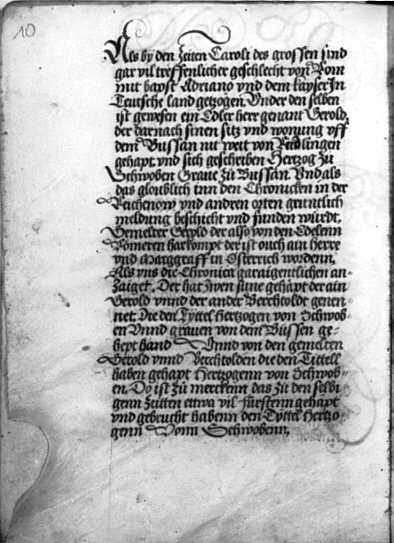 10
Als by den zeiten Caroli des grossen sind
gar vil treffenlicher geschlecht von Rom
mit bapst Adriano vnd dem kayser Jn
Teutsche land gezogen. Vnder den selben
ist gewesen ein Edler herr genant Gerold,
der darnach sinen sitz vnd wonung vff
dem Bussan nit weit von Riedlingen
gehapt vnd sich geschriben Hertzog zu
Schwoben Graue zu Bussan. Vnd als
das gloublich inn den Chronicken in der
Reichenow vnd andren orten gruntlich
meldung beschicht vnd funden würdt.
Gemelter Gerold der also von den Edelenn
Römeren harkompt der ist ouch ain herre
vnd Marggraff in Osterrich wordenn.
Als vns die Chronica gar aigentlichen an-
zaiget. Der hat zwen süne gehapt der ain
Gerold vnnd der ander Berchtoldt genen-
net. Die den Tyttel hertzogen von Schwob-
en Vnnd grauen von dem Bussen ge-
hept hand Vnnd von den gemelten
Gerold vnnd Berchtolden die den Tittell
haben gehapt Hertzogenn von Schwob-
en. Do ist zu merckenn das zu den selbi-
genn zeitten ettwa vil fürstenn gehapt
vnd gebrucht habenn den Tyttel Hertzo-
genn Vonn Schwobenn.